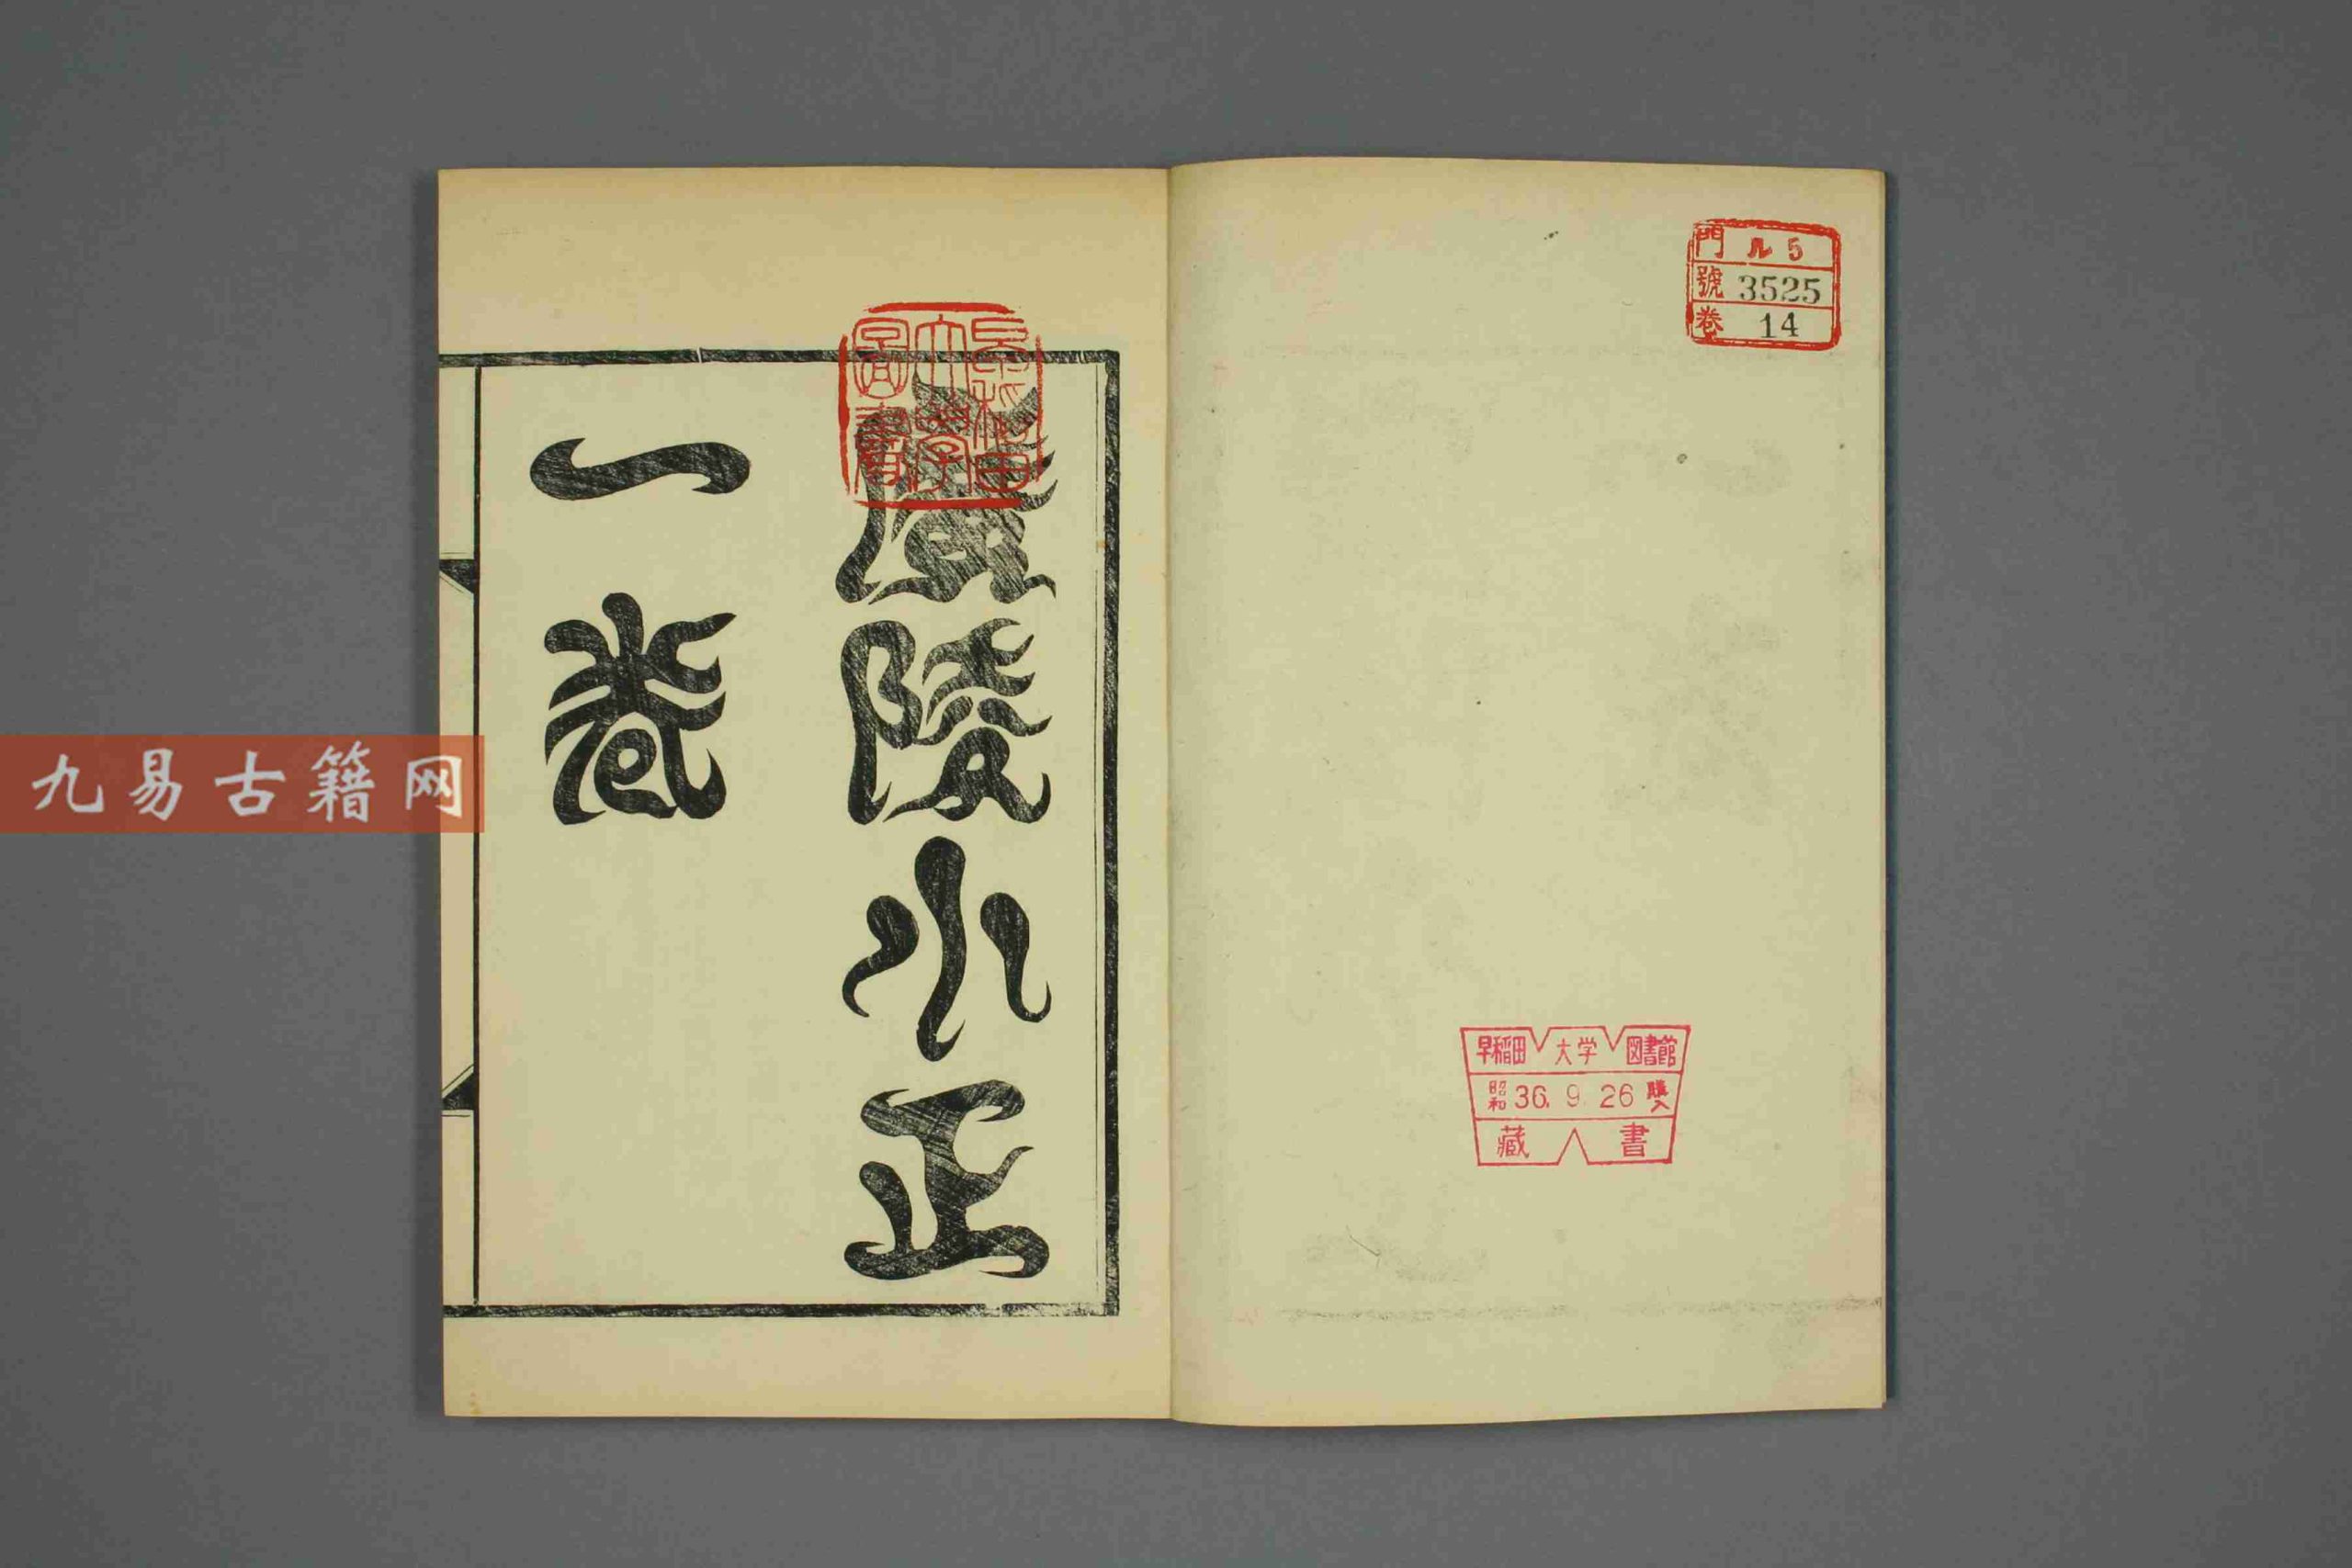 門 ル 5
號 3525
卷 14
早稲田大学図書館
昭和 36. 9. 26 購入
藏書
早稻田
大學
圖書
廣陵小正
一卷
九易古籍网